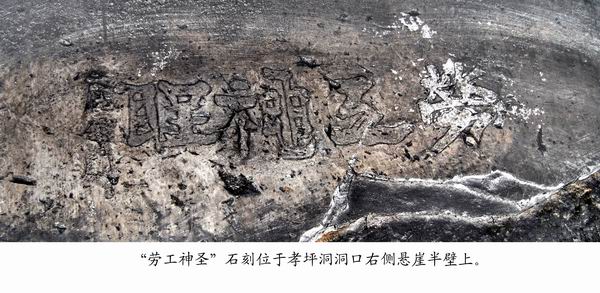 勞工神聖
“劳工神圣”石刻位于孝坪洞洞口右侧悬崖半壁上。